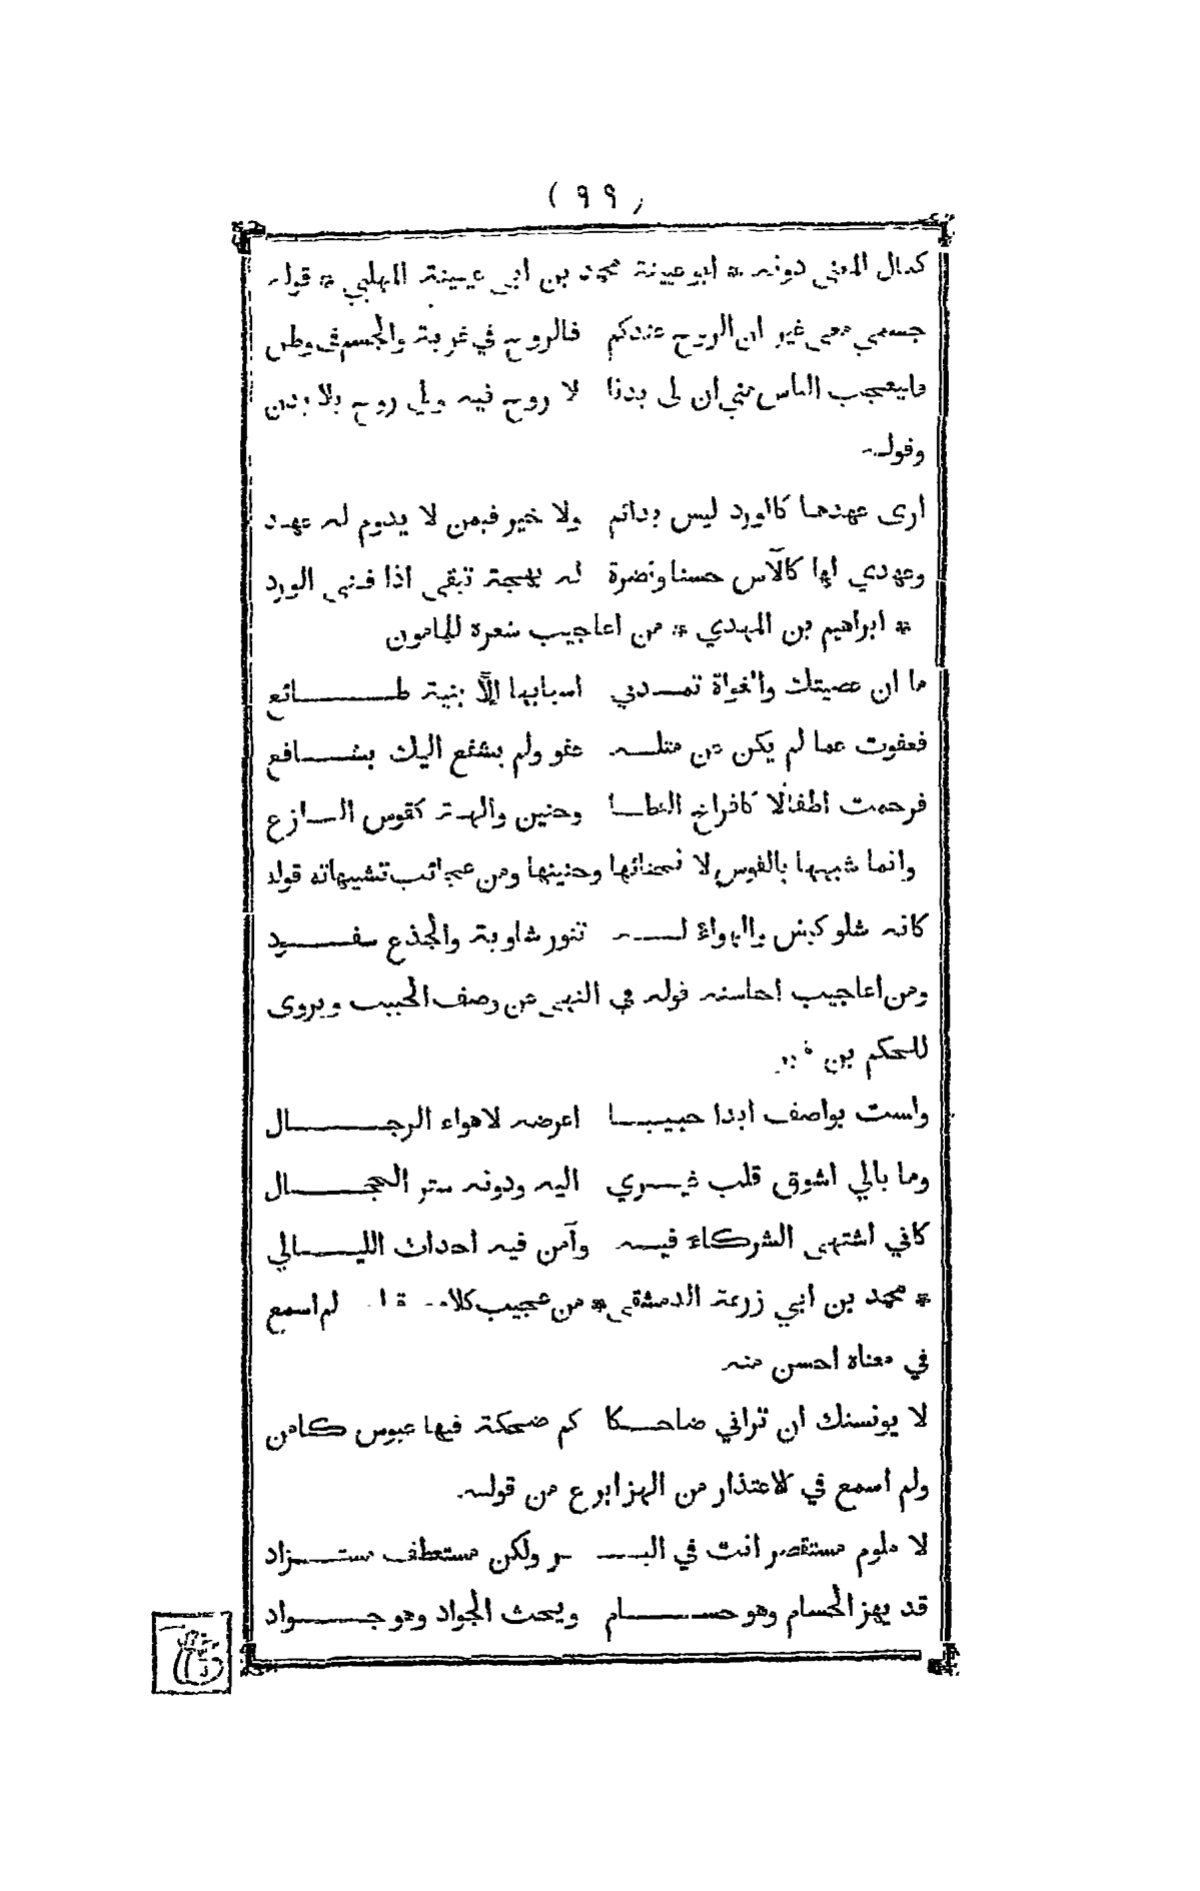 ( ٩٩ )
كمال المعنى دونه * ابو عيينة محمد بن ابي عيينة المهلبي * قوله
جسمي معي غير ان الروح عندكم فالروح في غربة والجسم في وطن
فليعجب الناس مني ان لي بدنا لا روح فيه ولي روح بلا بدن
وقوله
ارى عهدها كالورد ليس بدائم ولا خير فيمن لا يدوم له عهد
وعهدي لها كالآس حسنا ونضرة له بهجة تبقى اذا فنى الورد
* ابراهيم بن المهدي * من اعاجيب شعره للمامون
ما ان عصيتك والغواة تمدني اسبابها إلّا بنية طائع
فعفوت عما لم يكن من مثله عفو ولم يشفع اليك بشافع
فرحمت اطفالا كافراخ القطا وحنين والهة كقوس النازع
وانما شبهها بالقوس لا نحنائها وحنينها ومن عجائب تشبيهاته قوله
كانه شلو كبش والهواء له تنور شاوية والجذع سفيد
ومن اعاجيب احاسنه قوله في النهي عن وصف الحبيب ويروى
للحكم بن
ولست بواصف ابدا حبيبا اعرضه لاهواء الرجال
وما بالي اشوق قلب غيري اليه ودونه ستر الحجال
كاني اشتهي الشركاء فيه وآمن فيه احداث الليالي
* محمد بن ابي زرعة الدمشقي * من عجيب كلامه لم اسمع
في معناه احسن منه
لا يونسنك ان تراني ضاحكا كم ضحكة فيها عبوس كامن
ولم اسمع في الاعتذار من الهز ابرع من قوله
لا ملوم مستقصر انت في البر ولكن مستعطف مستزاد
قد يهز الحسام وهو حسام ويحث الجواد وهو جواد